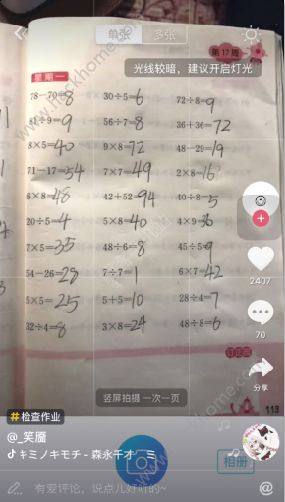 单张 多张
第17周
光线较暗，建议开启灯光
星期一
78-70=8 30÷5=6 72÷8=9
81÷9=9 56÷7=8 36+36=72
8×5=40 9×8=72 48-29=19
71-17=54 7×7=49 2×8=16
6×8=48 42+52=94 40÷8=5
20÷5=4 5×8=40 4×9=36
7×5=35 48÷6=8 45÷5=9
54-26=28 7÷7=1 6×7=42
5×5=25 5+5=10 28÷4=7
32÷4=8 3×8=24 48÷8=6
2407
70
分享
竖屏拍摄 一次一页
113
#检查作业
@_笑靥
キミノキモチ - 森永千才
相册
有爱评论，说点儿好听的~